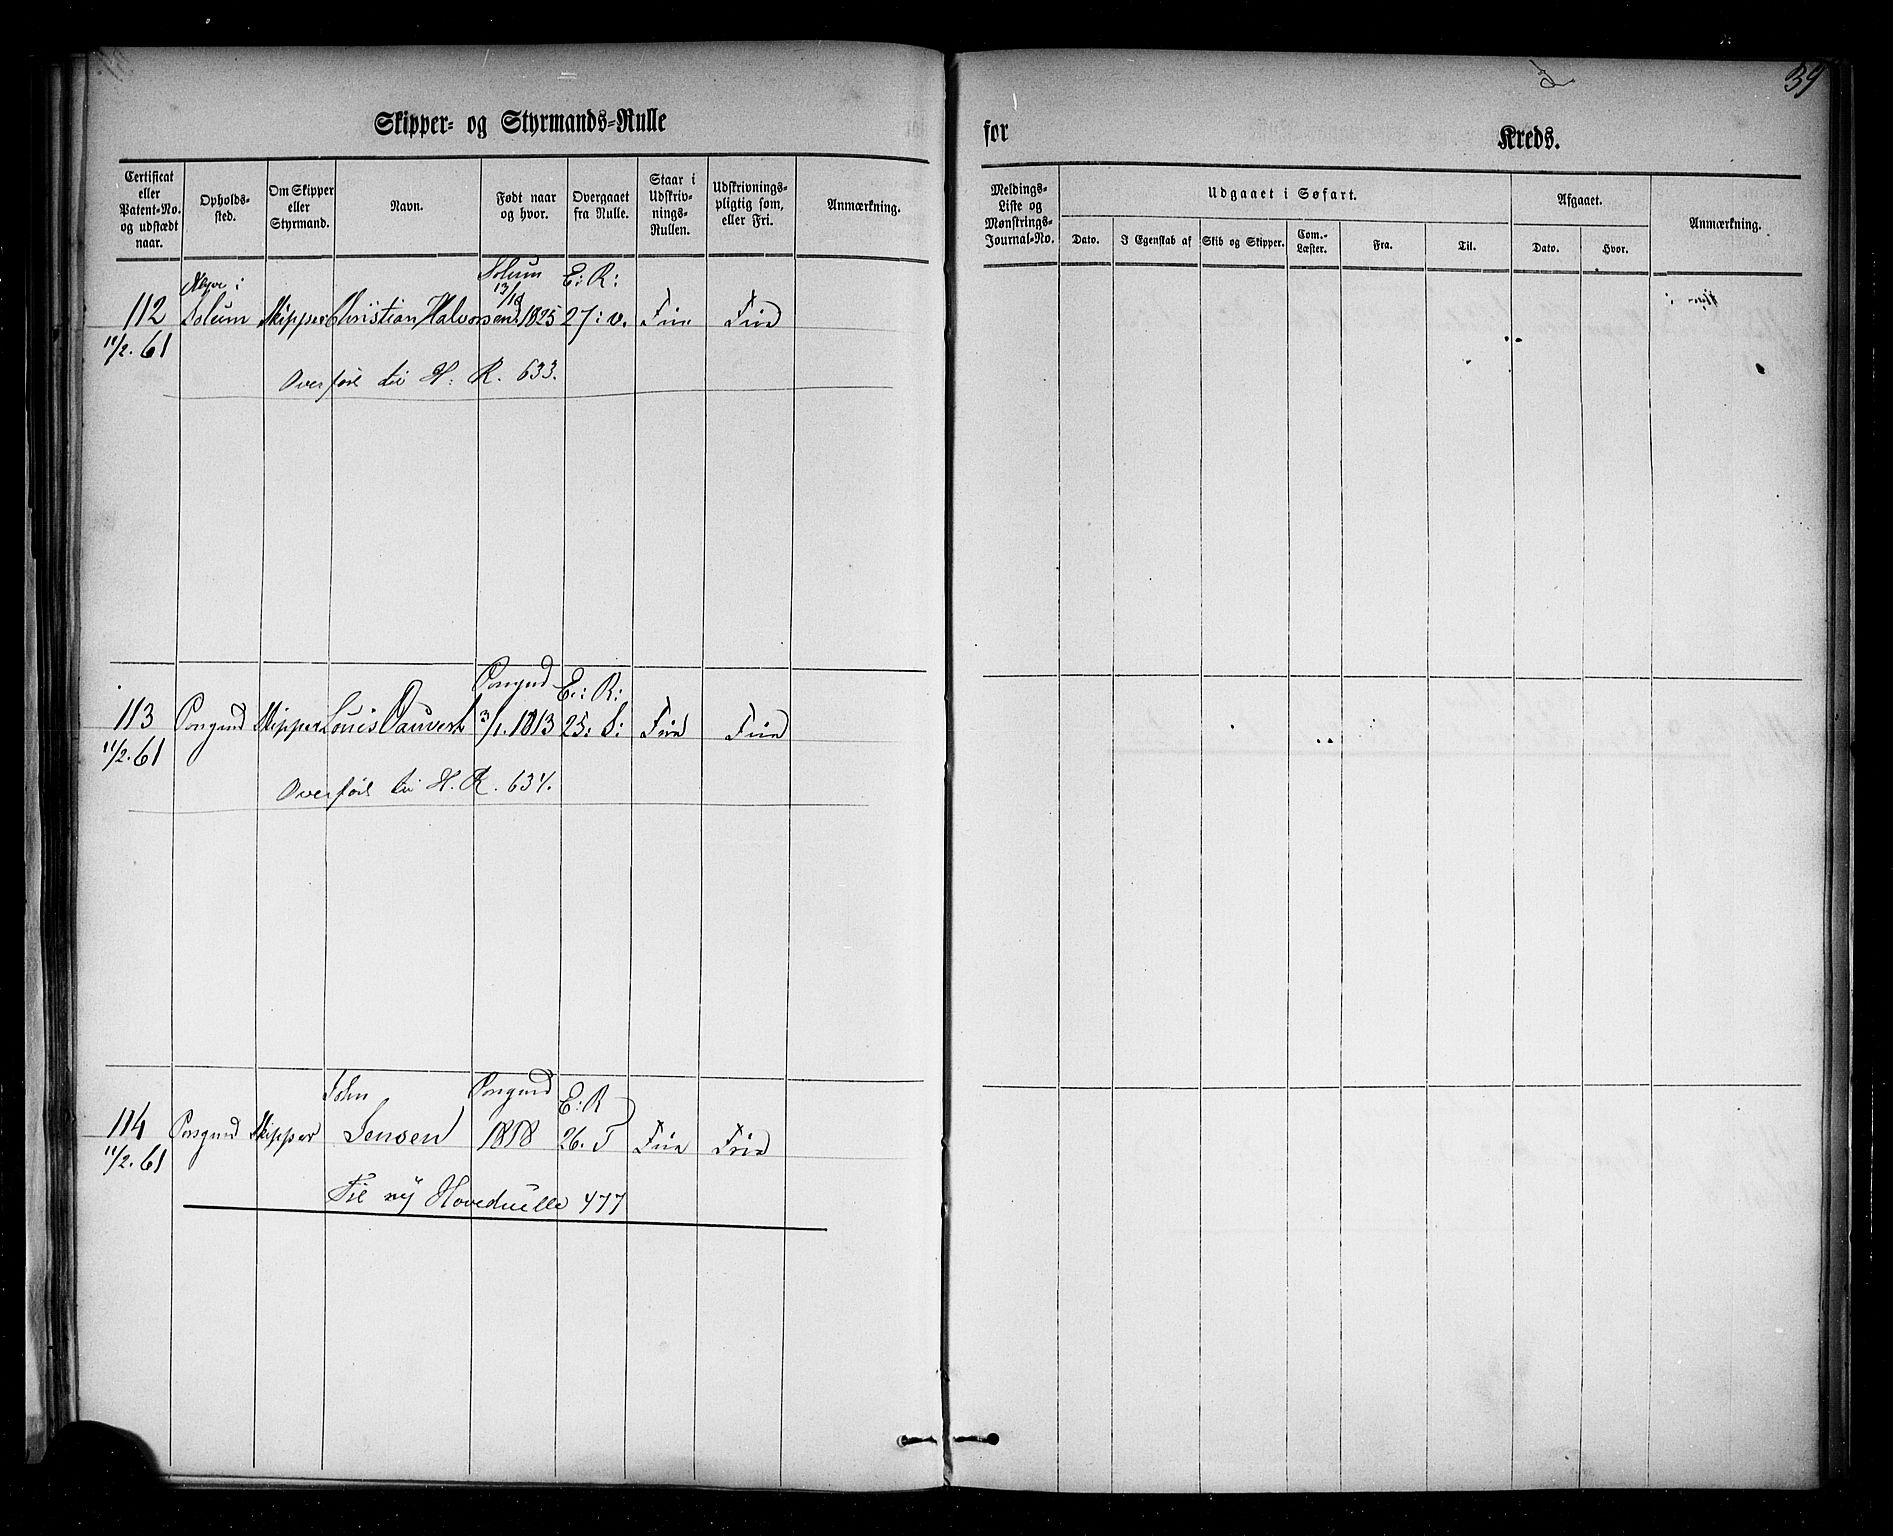 39
Skipper- og Styrmands-Rulle
for
Kreds.
Certificat eller Patent-No. og udstædt naar.
Opholds-sted.
Om Skipper eller Styrmand.
Navn.
Født naar og hvor.
Overgaaet fra Rulle.
Staar i Udskriv-nings-Rullen.
Udskrivnings-pligtig som, eller Fri.
Anmærkning.
Meldings-Liste og Mønstrings-Journal-No.
Udgaaet i Søfart.
Dato.
I Egenskab af
Skib og Skipper.
Com.-Læster.
Fra.
Til.
Afgaaet.
Dato.
Hvor.
Anmærkning.
Solum E: R:
13/10
112 Solum Skipper Christian Halvorsen 1825 27: v. Frie Frie
11/2. 61
Overført til H. R. 633.
Porsgrund E: R:
113 Porsgrund Skipper Louis 3/1. 1813 25: Frie Frie
11/2. 61
Overført til H. R. 634.
John Porsgrund E: R
114 Porsgrund Skipper Jensen 1818 26. Frie Frie
11/2. 61
Til ny Hovedrulle 477